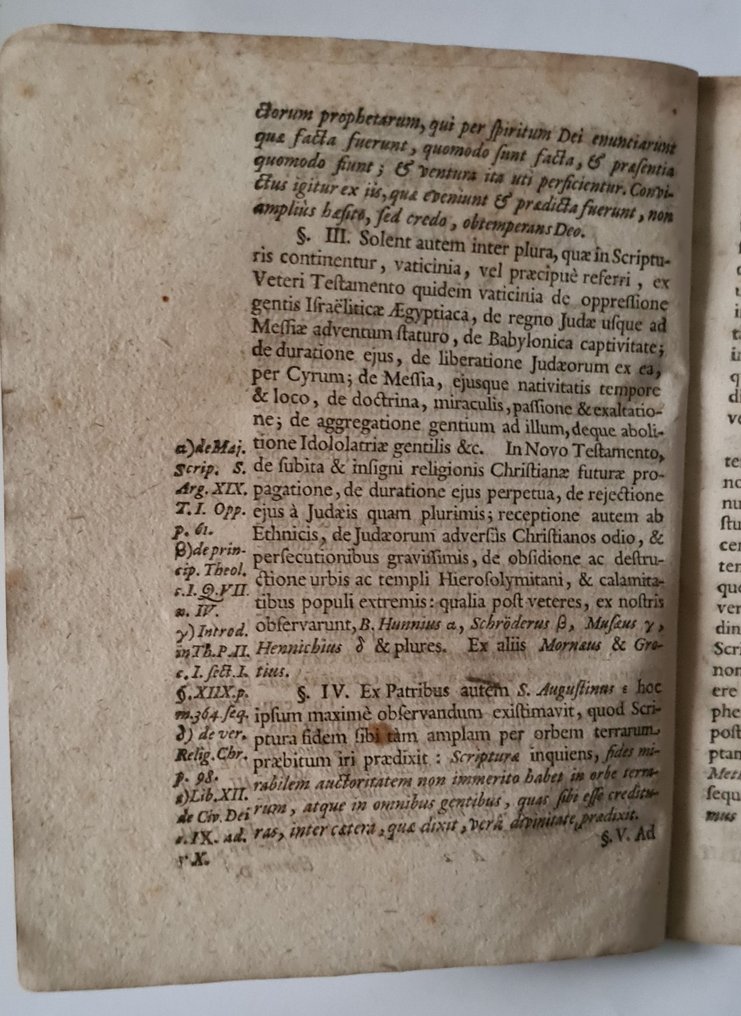 ctorum prophetarum, qui per spiritum Dei enunciarunt
quæ facta fuerunt, quomodo sunt facta, & præsentia
quomodo fiunt; & ventura ita uti perficientur. Convi-
ctus igitur ex iis, quæ eveniunt & prædicta fuerunt, non
ampliùs hæsito, sed credo, obtemperans Deo.
§. III. Solent autem inter plura, quæ in Scriptu-
ris continentur, vaticinia, vel præcipuè referri, ex
Veteri Testamento quidem vaticinia de oppressione
gentis Israëliticæ Ægyptiaca, de regno Judæ usque ad
Messiæ adventum staturo, de Babylonica captivitate;
de duratione ejus, de liberatione Judæorum ex ea,
per Cyrum; de Messia, ejusque nativitatis tempore
& loco, de doctrina, miraculis, passione & exaltatio-
ne; de aggregatione gentium ad illum, deque aboli-
tione Idololatriæ gentilis &c. In Novo Testamento,
de subita & insigni religionis Christianæ futuræ pro-
pagatione, de duratione ejus perpetua, de rejectione
ejus à Judæis quam plurimis; receptione autem ab
Ethnicis, de Judæorum adversùs Christianos odio, &
persecutionibus gravissimis, de obsidione ac destru-
ctione urbis ac templi Hierosolymitani, & calamita-
tibus populi extremis: qualia post veteres, ex nostris
observarunt, B. Hunnius α, Schröderus β, Musæus γ,
Hennichius δ & plures. Ex aliis Mornæus & Gro-
tius.
§. IV. Ex Patribus autem S. Augustinus ε hoc
ipsum maximè observandum existimavit, quod Scri-
ptura fidem sibi tàm amplam per orbem terrarum
præbitum iri prædixit: Scriptura inquiens, fides mi-
rabilem auctoritatem non immerito habet in orbe terra-
rum, atque in omnibus gentibus, quas sibi esse creditu-
ras, inter cætera, quæ dixit, verâ divinitate prædixit.
§. V. Ad
α) de Maj.
Scrip. S.
Arg. XIX.
T. I. Opp.
p. 61.
β) de prin-
cip. Theol.
c. I. Q. VII.
n. IV.
γ) Introd.
in Th. P. II.
c. I. sect. I.
§. XIIX. p.
m. 364. seq.
δ) de ver.
Relig. Chr.
p. 98.
ε) Lib. XII.
de Civ. Dei
c. IX. ad.
X.